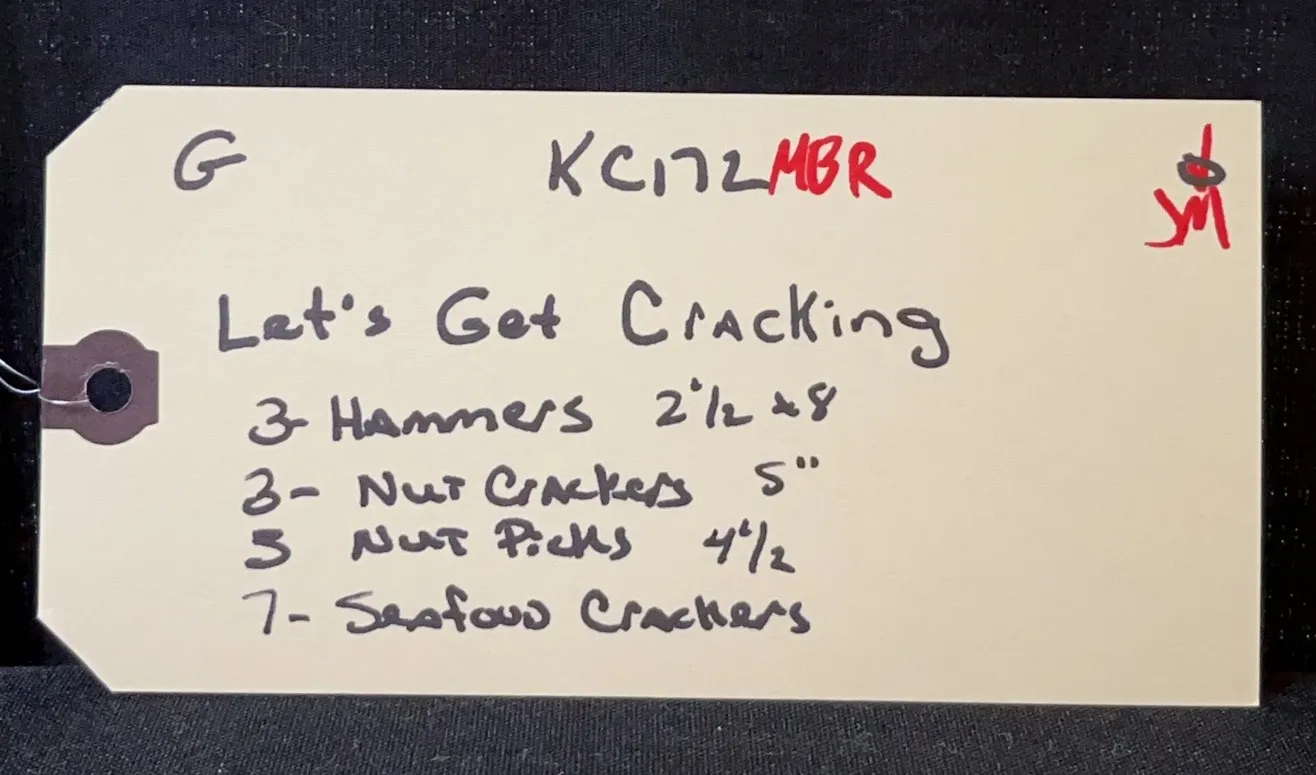 G KC172MBR JM
Let's Get Cracking
3- Hammers 2 1/2 x 8
3- Nut Crackers 5"
5 Nut Picks 4 1/2
7- Seafood Crackers